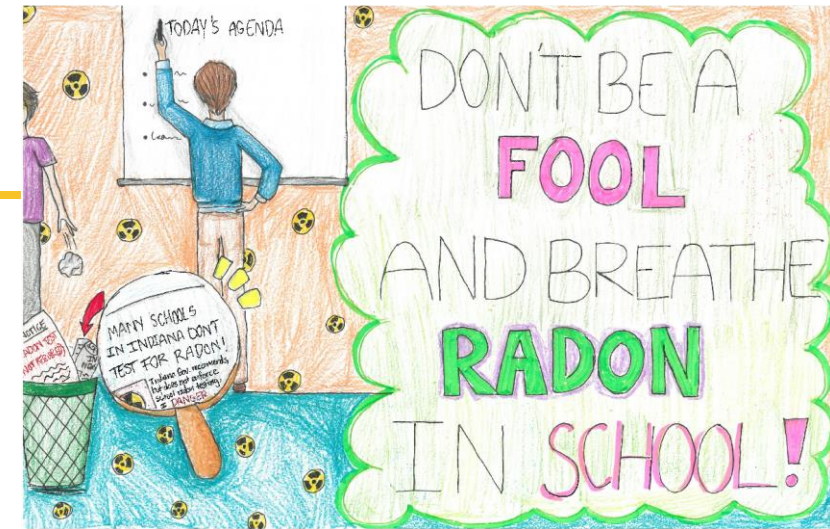 TODAY'S AGENDA
• Learn
DON'T BE A
FOOL
AND BREATHE
RADON
IN SCHOOL!
MANY SCHOOLS
IN INDIANA DONT
TEST FOR RADON!
Indiana Gov. recommends
but does not enforce
school radon testing.
= DANGER
NOTICE
RADON TEST